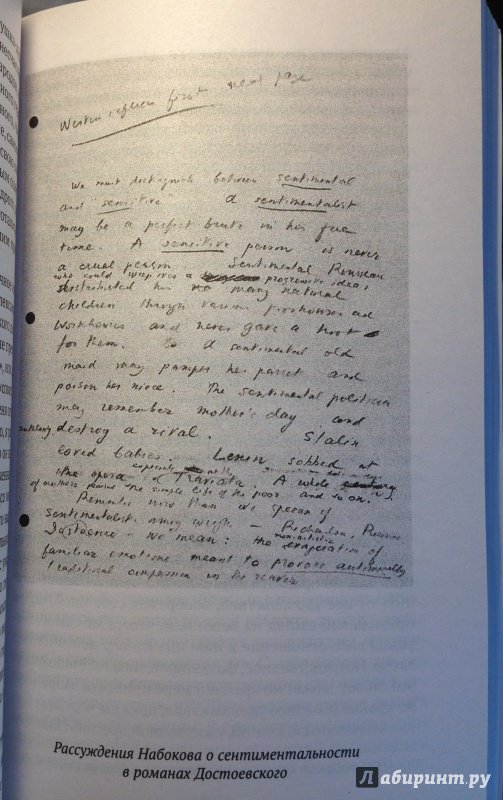 Western influence first next page
We must distinguish between sentimental
and "sensitive". A sentimentalist
may be a perfect brute in his free
time. A sensitive person is never
a cruel person. Sentimental Rousseau
who could weep over a progressive idea,
distributed his many natural
children through various poorhouses and
workhouses and never gave a hoot
for them. A sentimental old
maid may pamper her parrot and
poison her niece. The sentimental politician
may remember mother's day and
ruthlessly destroy a rival. Stalin
loved babies. Lenin sobbed at
the opera especially at the Traviata. A whole century
of authors praised the simple life of the poor and so on.
Remember now when we speak of
sentimentalists among
Richardson, Rousseau
Dostoevski - we mean: the non-artistic exaggeration of
familiar emotions meant to provoke automatically
traditional compassion in the reader
Рассуждения Набокова о сентиментальности
в романах Достоевского
Лабиринт.ру